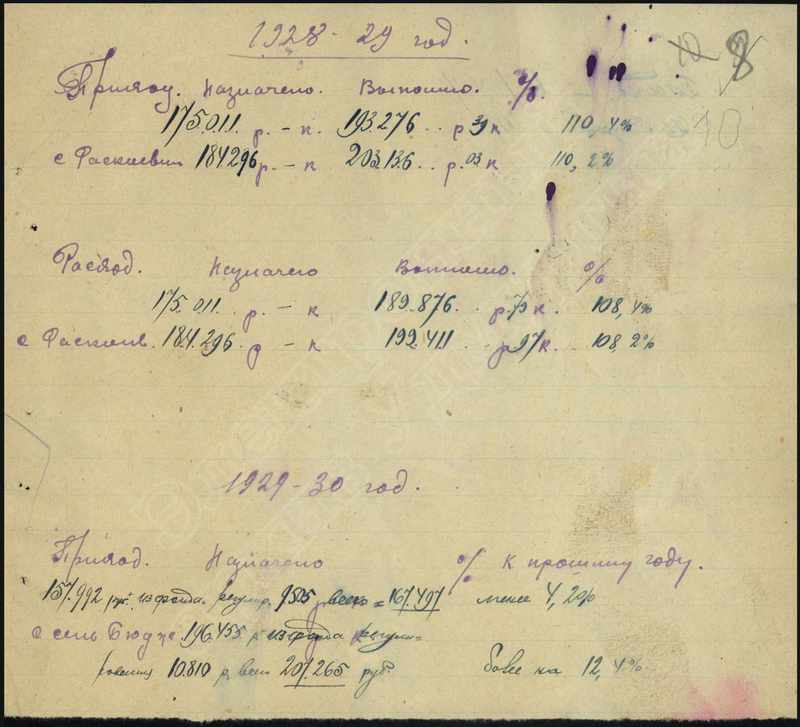 8
10
1928-29 год.
Приход. Назначено. Выполнено. %
175.011. р. – к. 193.276 .. р 39 к 110,4%
с 184296 р – к 203.136 .. р. 03 к 110,2%
Расход. Назначено Выполнено. %
175.011. р. – к 189.876. .. р. 79 к. 108,4%
с 184.296. р – к 192.411 .. р 97 к. .. 108,2%
1929-30 год.
Приход. Назначено % к прошлому году.
157.992 руб. из фонда. регулир. 9505 р всего = 167.497 менее 4,2%
с сель Бюдже. 196.455 р из фонда регули=
рования 10.810 р, всего 207.265 руб. более на 12,4%